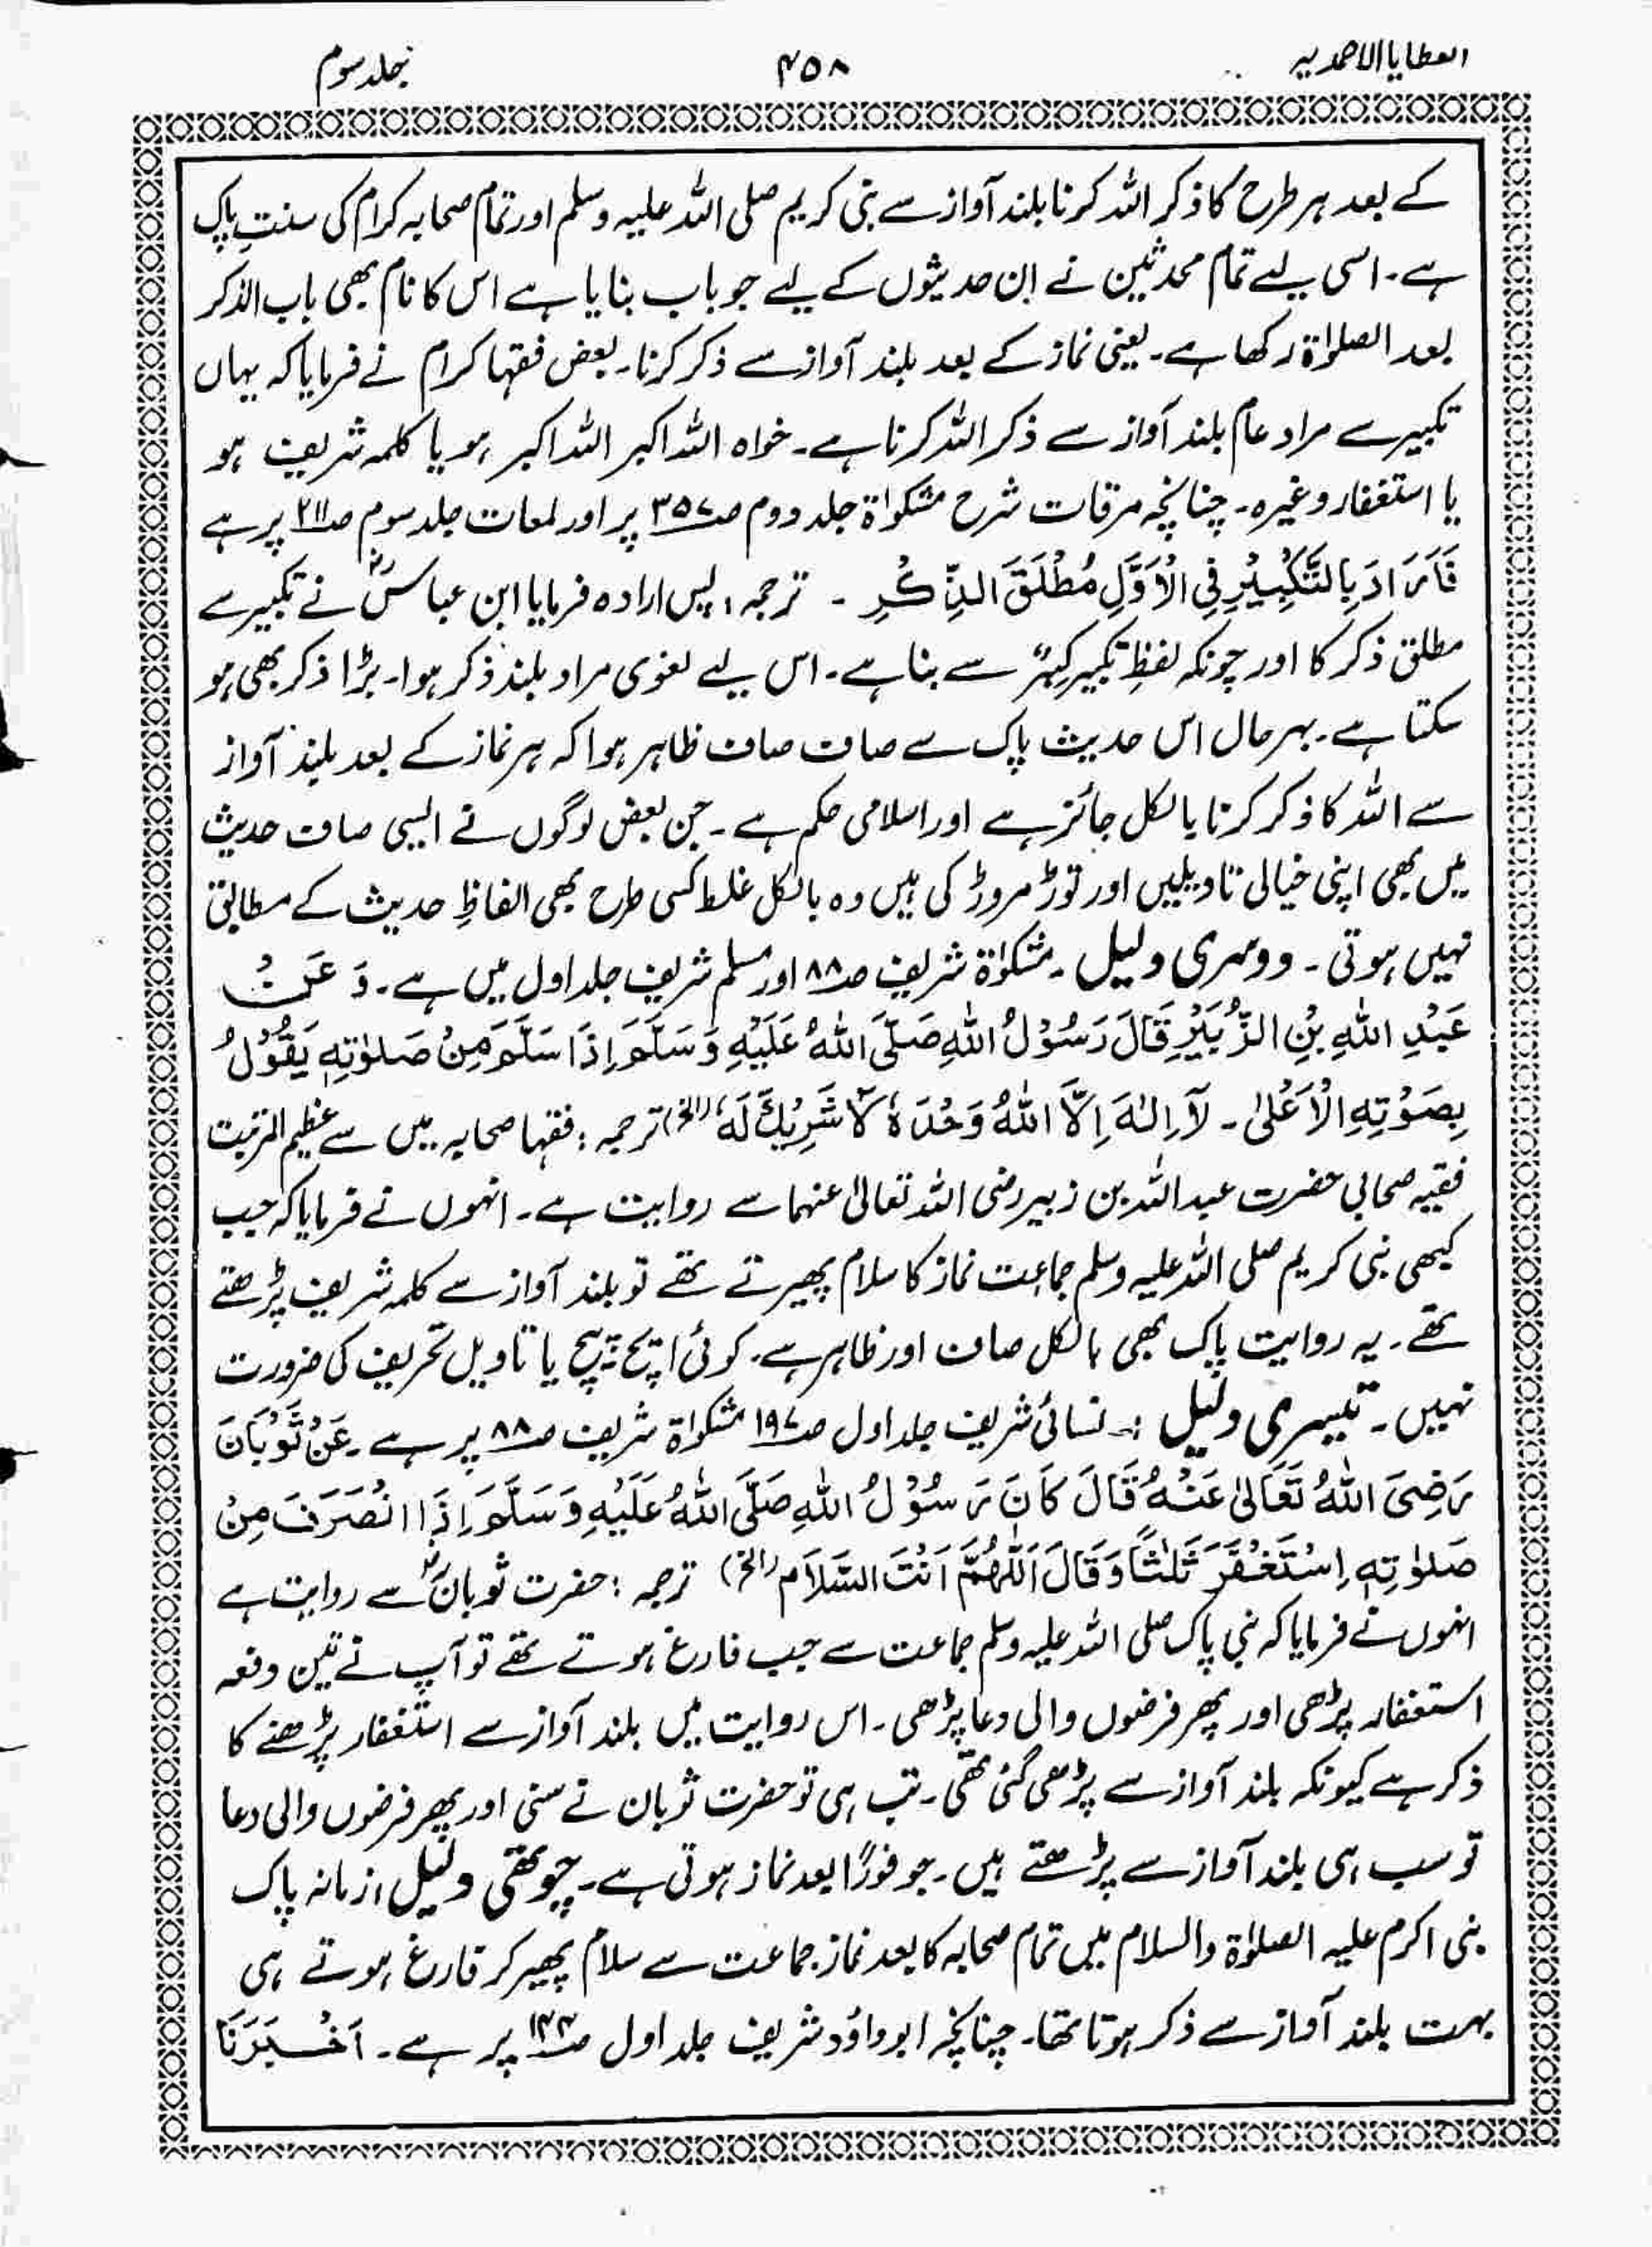 العطایا الاحمدیہ ۴۵۸ جلد سوم
کے بعد ہر طرح کا ذکر اللہ کرنا بلند آواز سے نبی کریم صلی اللہ علیہ وسلم اور تمام صحابہ کرام کی سنتِ پاک
ہے۔ اسی لیے تمام محدثین نے ان حدیثوں کے لیے جو باب بنایا ہے اس کا نام بھی باب الذکر
بعد الصلوٰۃ رکھا ہے۔ یعنی نماز کے بعد بلند آواز سے ذکر کرنا۔ بعض فقہا کرام نے فرمایا کہ یہاں
تکبیر سے مراد عام بلند آواز سے ذکر اللہ کرنا ہے۔ خواہ اللہ اکبر اللہ اکبر ہو یا کلمہ شریف ہو
یا استغفار وغیرہ۔ چنانچہ مرقات شرح مشکوٰۃ جلد دوم صـ۳۵۷ پر اور لمعات جلد سوم صـ۲۱۱ پر ہے
فَاَرَادَ بِالتَّكْبِيْرِ فِي الْاَوَّلِ مُطْلَقَ الذِّكْرِ ۔ ترجمہ: پس ارادہ فرمایا ابن عباسؓ نے تکبیر سے
مطلق ذکر کا اور چونکہ لفظِ تکبیر کِبْرٌ سے بنا ہے۔ اس لیے لغوی مراد بلند ذکر ہوا۔ بڑا ذکر بھی ہو
سکتا ہے۔ بہر حال اس حدیث پاک سے صاف صاف ظاہر ہوا کہ ہر نماز کے بعد بلند آواز
سے اللہ کا ذکر کرنا بالکل جائز ہے اور اسلامی حکم ہے۔ جن بعض لوگوں نے ایسی صاف حدیث
میں بھی اپنی خیالی تاویلیں اور توڑ مروڑ کی ہیں وہ بالکل غلط کسی طرح بھی الفاظِ حدیث کے مطابق
نہیں ہوتی۔ دوسری دلیل ۔ مشکوٰۃ شریف صـ۸۸ اور مسلم شریف جلد اول میں ہے۔ وَ عَنْ
عَبْدِ اللهِ بْنِ الزُّبَيْرِ قَالَ رَسُوْلُ اللهِ صَلَّى اللهُ عَلَيْهِ وَسَلَّمَ اِذَا سَلَّمَ مِنْ صَلوٰتِهٖ يَقُوْلُ
بِصَوْتِهِ الْاَعْلىٰ ۔ لَآ اِلٰهَ اِلَّا اللهُ وَحْدَهٗ لَا شَرِيْكَ لَهٗ (الخ) ترجمہ : فقہا صحابہ میں سے عظیم المرتبت
فقیہ صحابی حضرت عبداللہ بن زبیر رضی اللہ تعالیٰ عنہما سے روایت ہے۔ انہوں نے فرمایا کہ جب
کبھی نبی کریم صلی اللہ علیہ وسلم جماعت نماز کا سلام پھیرتے تھے تو بلند آواز سے کلمہ شریف پڑھتے
تھے۔ یہ روایت پاک بھی بالکل صاف اور ظاہر ہے۔ کوئی ایچ پیچ یا تاویل تحریف کی ضرورت
نہیں۔ تیسری دلیل :۔ نسائی شریف جلد اول صـ۱۹۷ مشکوٰۃ شریف صـ۸۸ پر ہے۔ عَنْ ثَوْبَانَ
رَضِيَ اللهُ تَعَالىٰ عَنْهُ قَالَ كَانَ رَسُوْلُ اللهِ صَلَّى اللهُ عَلَيْهِ وَسَلَّمَ اِذَا انْصَرَفَ مِنْ
صَلوٰتِهٖ اِسْتَغْفَرَ ثَلٰثًا وَقَالَ اَللّٰهُمَّ اَنْتَ السَّلَامُ (الخ) ترجمہ : حضرت ثوبانؓ سے روایت ہے
انہوں نے فرمایا کہ نبی پاک صلی اللہ علیہ وسلم جماعت سے جب فارغ ہوتے تھے تو آپ نے تین دفعہ
استغفار پڑھی اور پھر فرضوں والی دعا پڑھی۔ اس روایت میں بلند آواز سے استغفار پڑھنے کا
ذکر ہے کیونکہ بلند آواز سے پڑھی گئی تھی۔ تب ہی تو حضرت ثوبان نے سنی اور پھر فرضوں والی دعا
تو سب ہی بلند آواز سے پڑھتے ہیں۔ جو فورًا بعد نماز ہوتی ہے۔ چوتھی دلیل : زمانہ پاک
نبی اکرم علیہ الصلوٰۃ والسلام میں تمام صحابہ کا بعد نماز جماعت سے سلام پھیر کر فارغ ہوتے ہی
بہت بلند آواز سے ذکر ہوتا تھا۔ چنانچہ ابوداؤد شریف جلد اول صـ۱۴۴ پر ہے۔ اَخْبَرَنَا